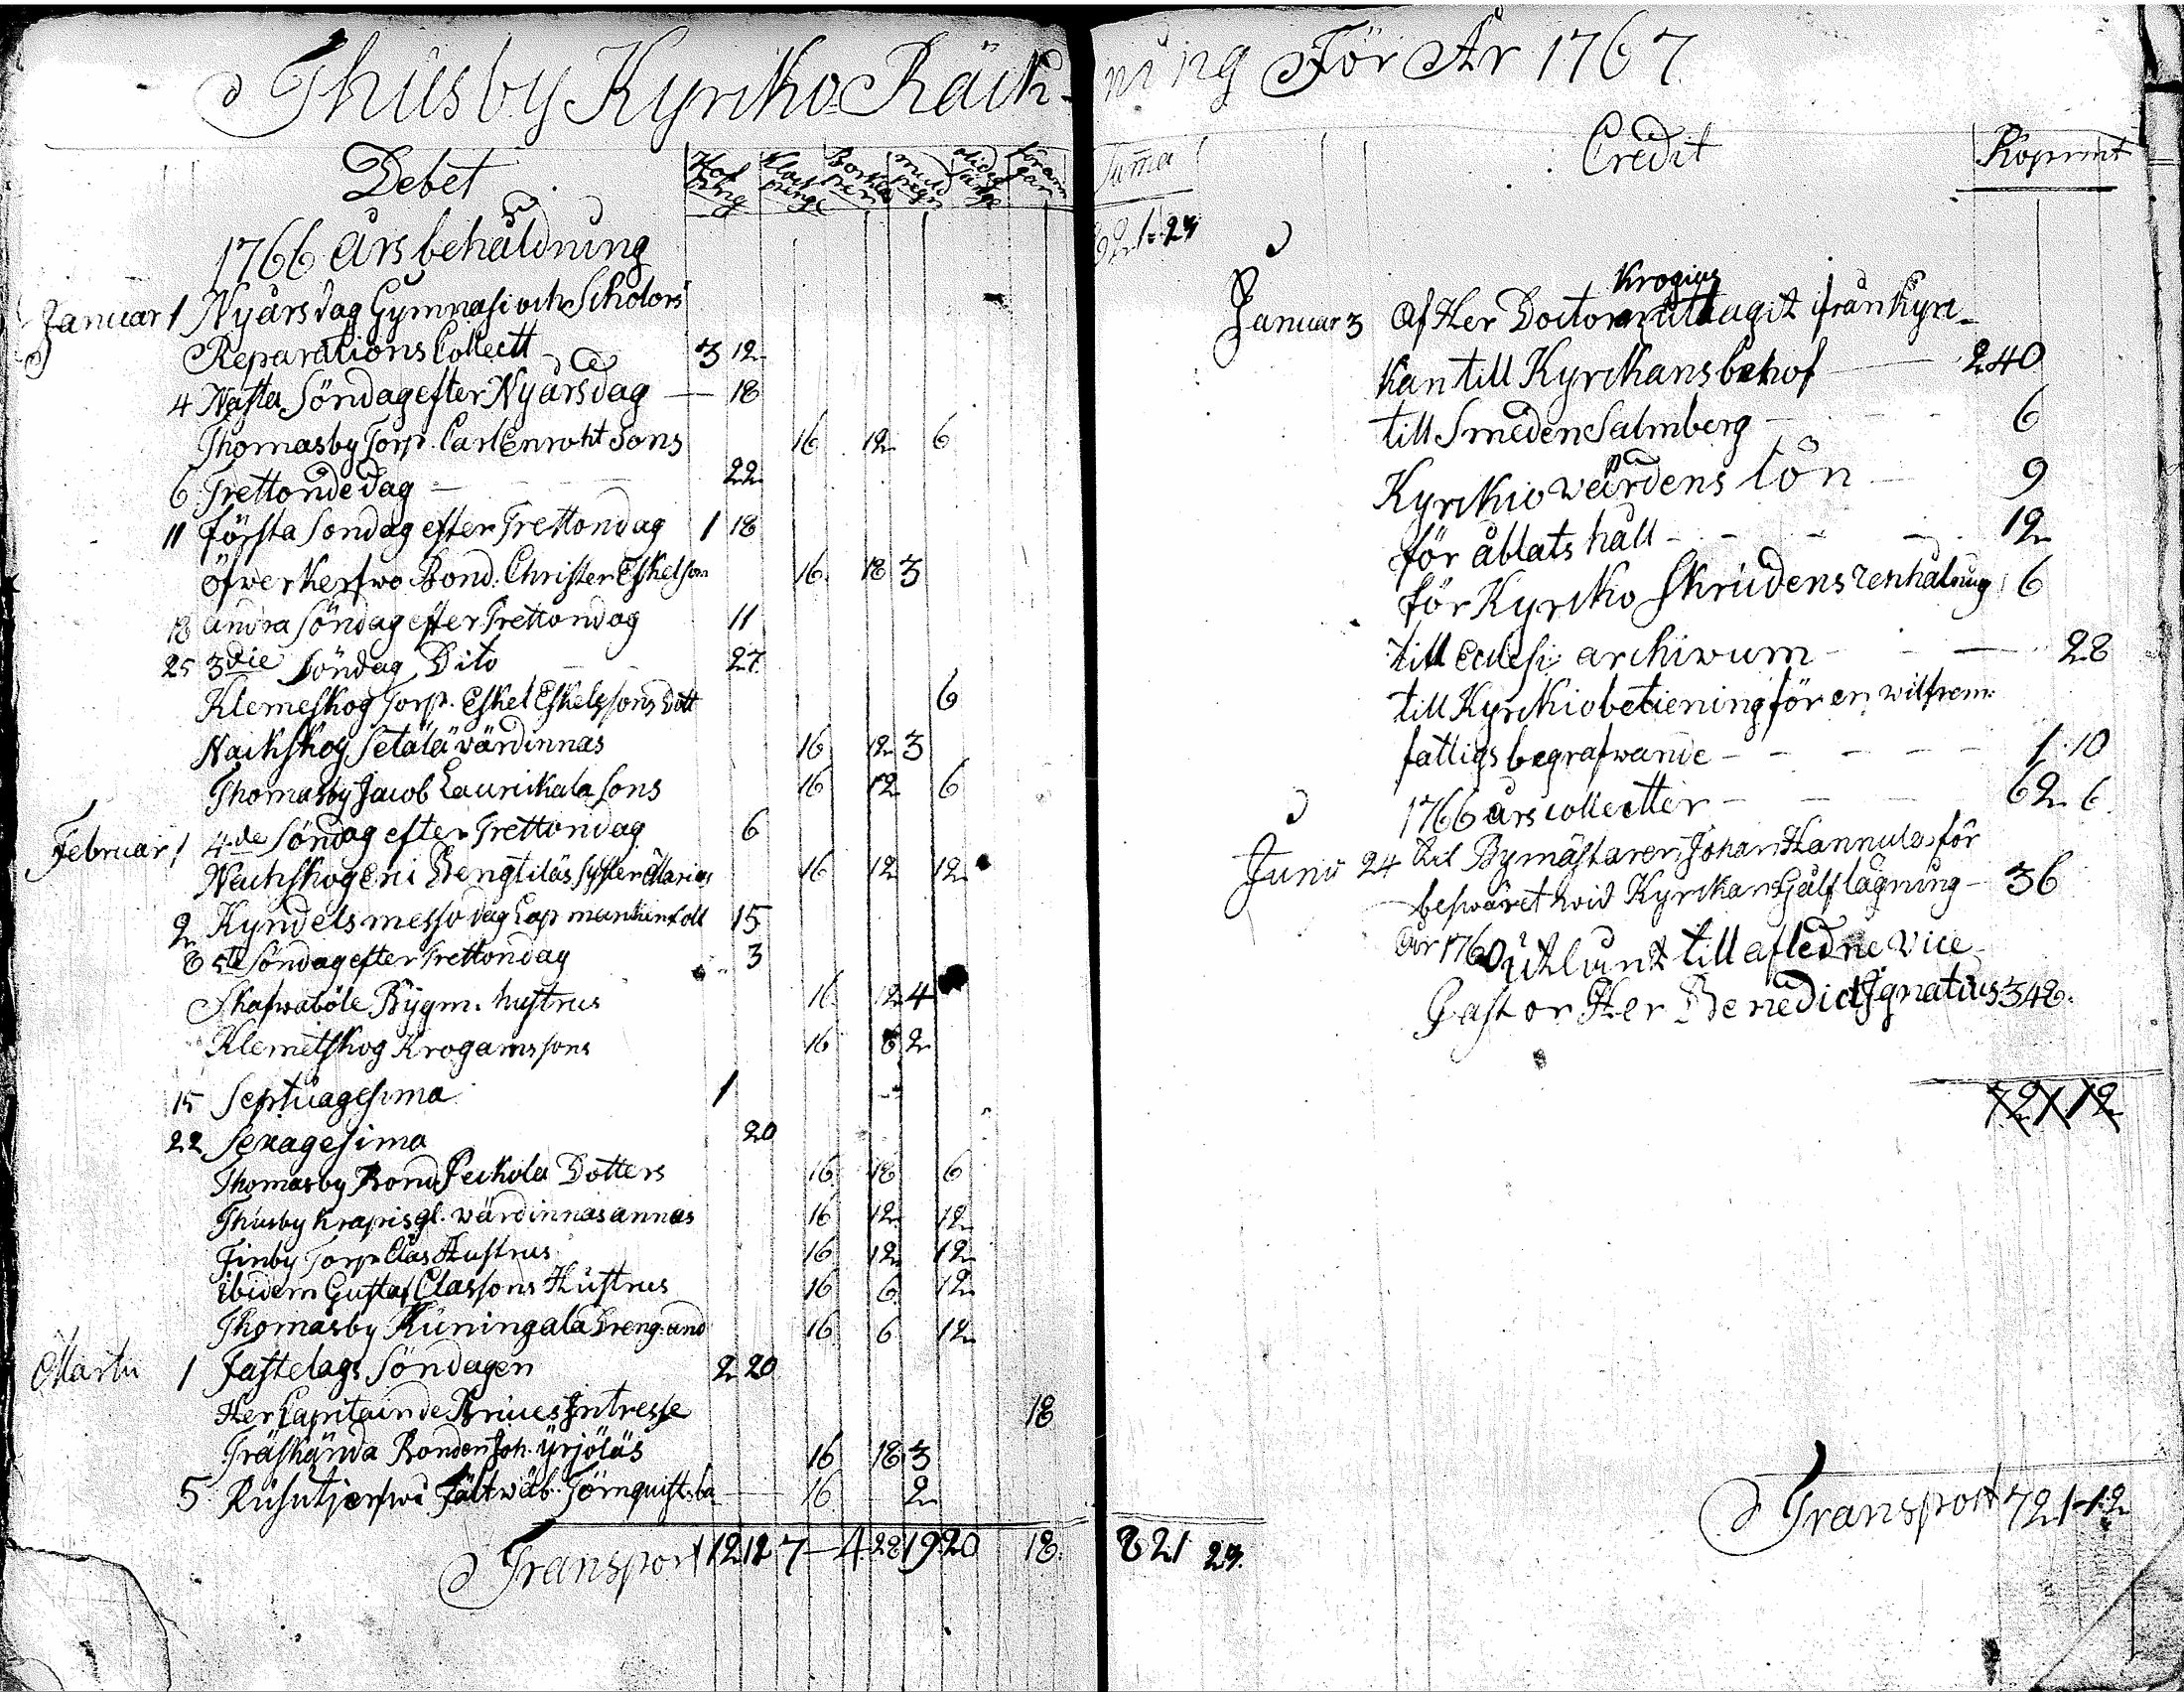 Thusby Kyrko Räck-
Debet
1766 års behåldning
Januar 1 Nyårsdag Gymnasi och Scholors
Reparations Collectt 3 12
4 Nästa Söndag efter Nyårsdag — 18
Thomasby Torp. Carl Enroht Sons 16 12 6
6 Trettonde dag — 22
11 första Sondag efter Trettondag 1 18
öfverkerfwo Bond. Christer Eskelson 16 18 3
18 andra Söndag efter Trettondag 11
25 3die Söndag Dito 27
Klemeskog Torp. Eskel Eskelssons Dott 6
Nackskog Setälä värdinnas 16 12 3
Thomasby Jacob Laurickala sons 16 12 6
Februar 1 4de Söndag efter Trettondag 6
Nackskog Eric Bengtiläs syster Marias 16 12 12
2 Kyndelsmesso dag Lapmarckins Coll 15
8 5te Söndag efter Trettondag 3
Skafwaböle Rygm. hustrus 16 12 4
Klemetskog Krogams sons 16 6 2
15 Septuagesima 1
22 Sexagesima 20
Thomasby Bond Peckola Dotters 16 18 6
Thusby Krapis gl. värdinnas annas 16 12 12
Finby Torp. Clas Hustrus 16 12 12
ibidem Gustaf Classons Hustrus 16 6 12
Thomasby Kuningala Dreng. and 16 6 12
Martii 1 Fastelags Söndagen 2 20
Her Capitain de Bruces Intresse 18
Träskända Bonden Joh. Yrjöläs 16 18 3
5 Rusutjerfwi Fältwäb. Törnquists ba 16 2
Transport 12 12 7 — 4 28 19 20 18
ning För År 1767
Suma Credit Kopermt
621 23
Krogius
Januar 3 Af Her Doctorn uttagit från Kyr-
kan till Kyrckans behof — 240
till Smeden Salmberg — 6
Kyrckiowärdens lön — 9
för åblats håll — 12
för Kyrcko Skrudens renhålning 6
till Eclesi: archivum — 28
till Kyrckiobetiening för en wilfrem:
fattigs begrafwande — 1 10
1766 års collecter — 62 6
Junii 24 till Bymästaren Johan Hannula för
beswäret wid Kyrckans Gålf lagning — 36
År 1760 utlånt till afledne Vice
Pastor Her Benedict Ignatius 348
721 12
Transport 721 12
821 23